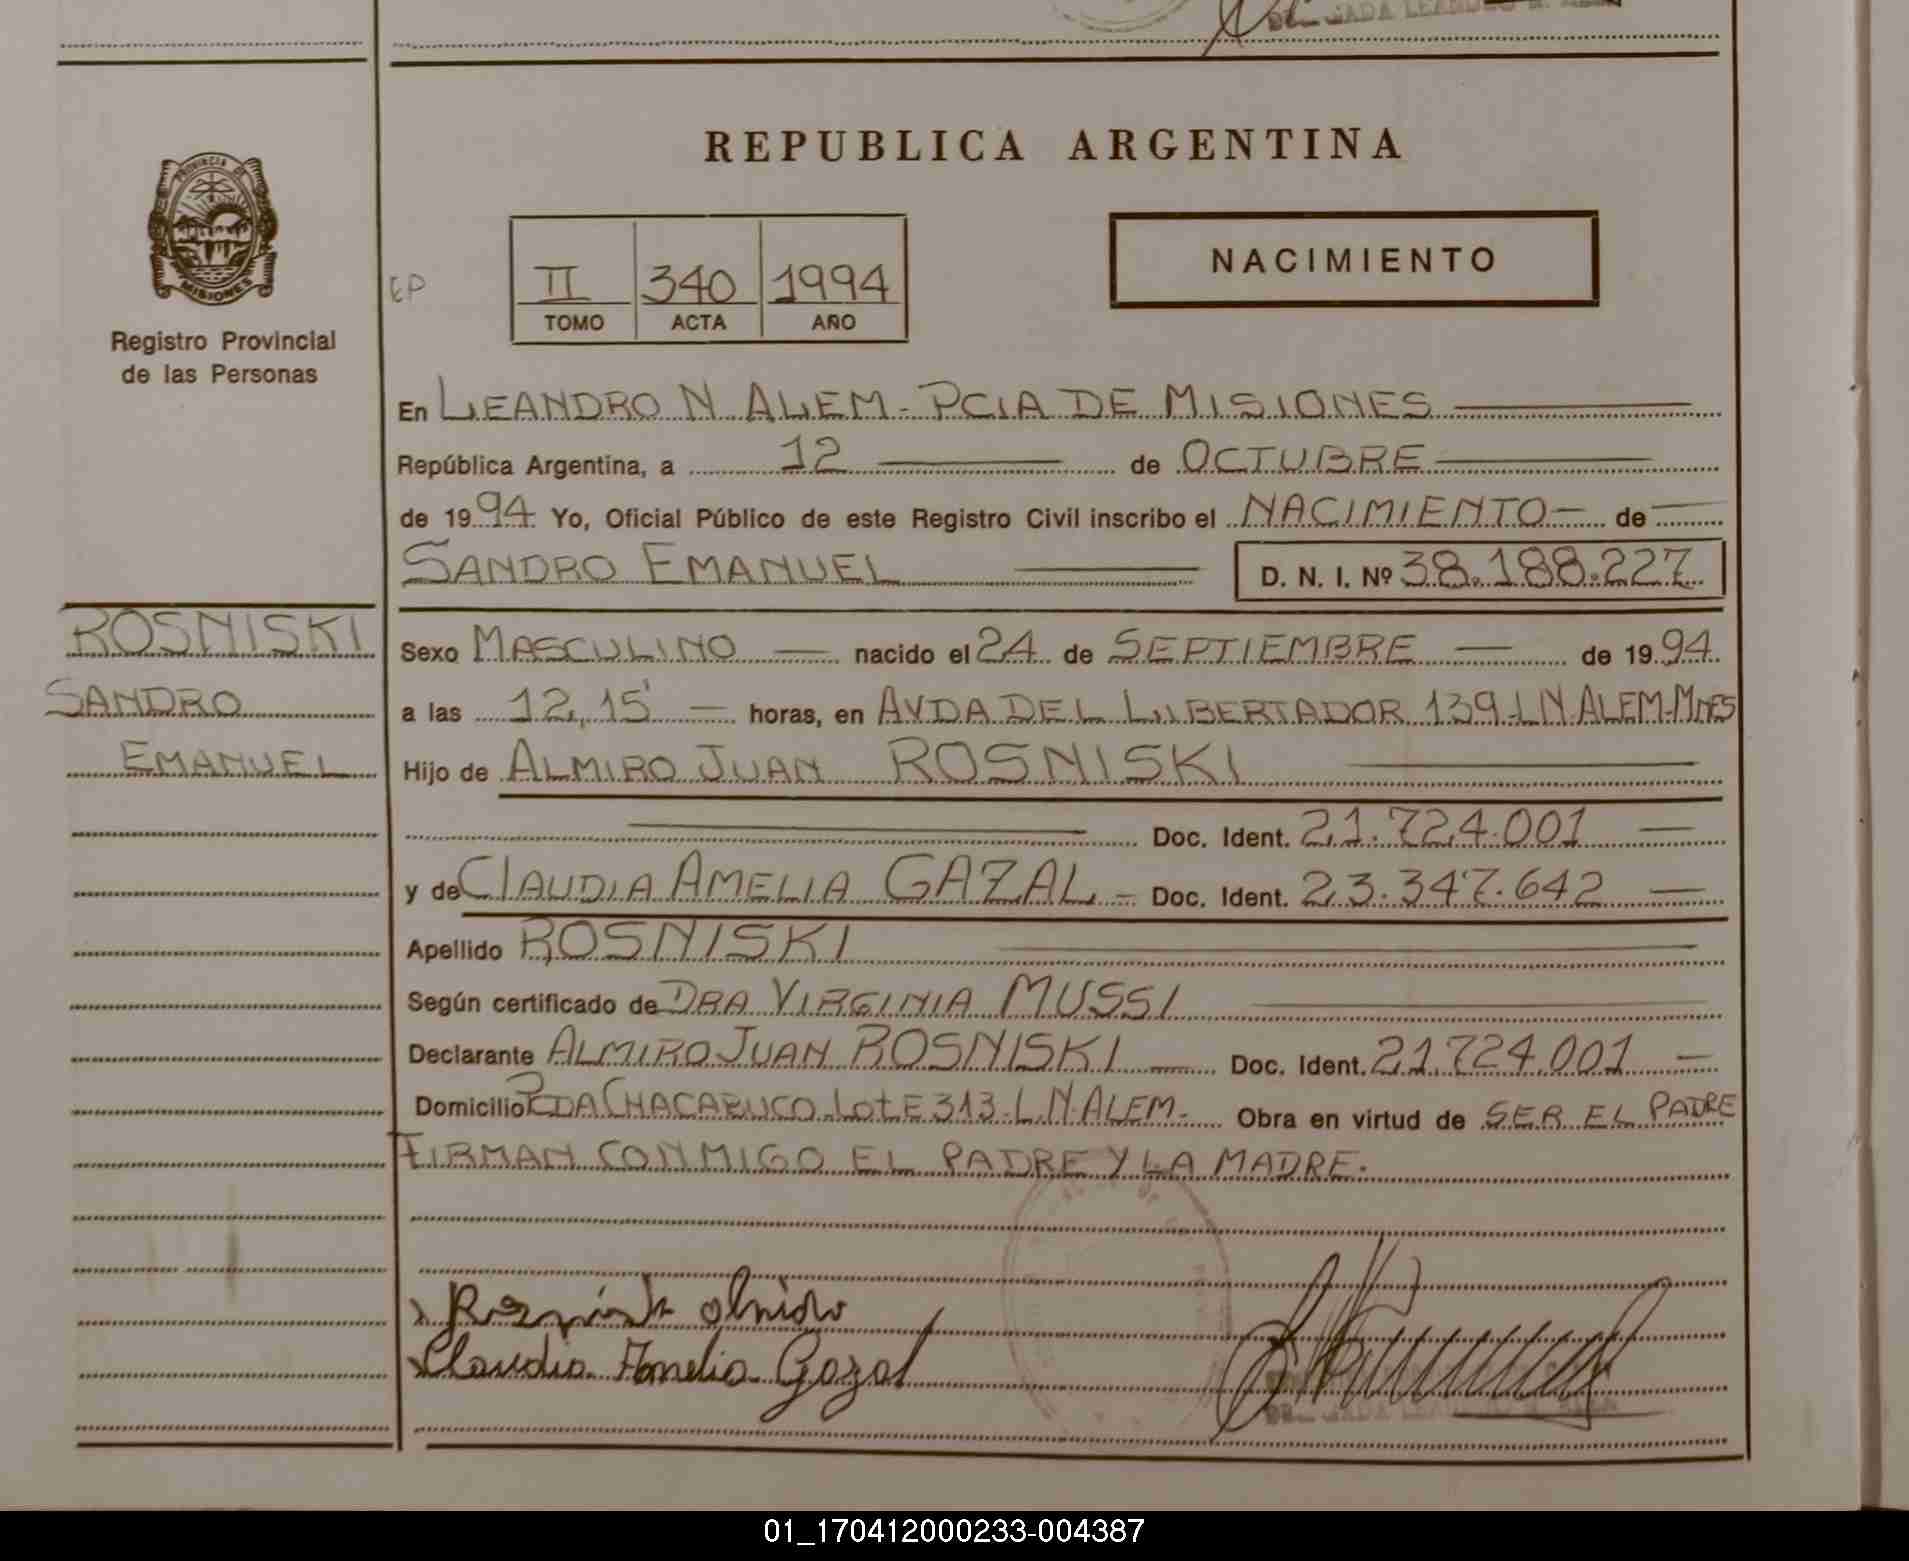 REPUBLICA ARGENTINA
PROVINCIA DE
MISIONES
Registro Provincial
de las Personas
EP
II 340 1994
TOMO ACTA AÑO
NACIMIENTO
En LEANDRO N ALEM - PCIA DE MISIONES
República Argentina, a 12 de OCTUBRE
de 1994 Yo, Oficial Público de este Registro Civil inscribo el NACIMIENTO de
SANDRO EMANUEL D. N. I. Nº 38.188.227
ROSNISKI
SANDRO
EMANUEL
Sexo MASCULINO nacido el 24 de SEPTIEMBRE de 1994
a las 12,15' horas, en AVDA DEL LIBERTADOR 139-L N ALEM-MNES
Hijo de ALMIRO JUAN ROSNISKI
Doc. Ident. 21.724.001
y de CLAUDIA AMELIA GAZAL - Doc. Ident. 23.347.642
Apellido ROSNISKI
Según certificado de DRA VIRGINIA MUSSI
Declarante ALMIRO JUAN ROSNISKI Doc. Ident. 21.724.001
Domicilio PCDA CHACABUCO-LOTE 313-L.N.ALEM- Obra en virtud de SER EL PADRE
FIRMAN CONMIGO EL PADRE Y LA MADRE.
Claudia Amelia Gazal
01_170412000233-004387